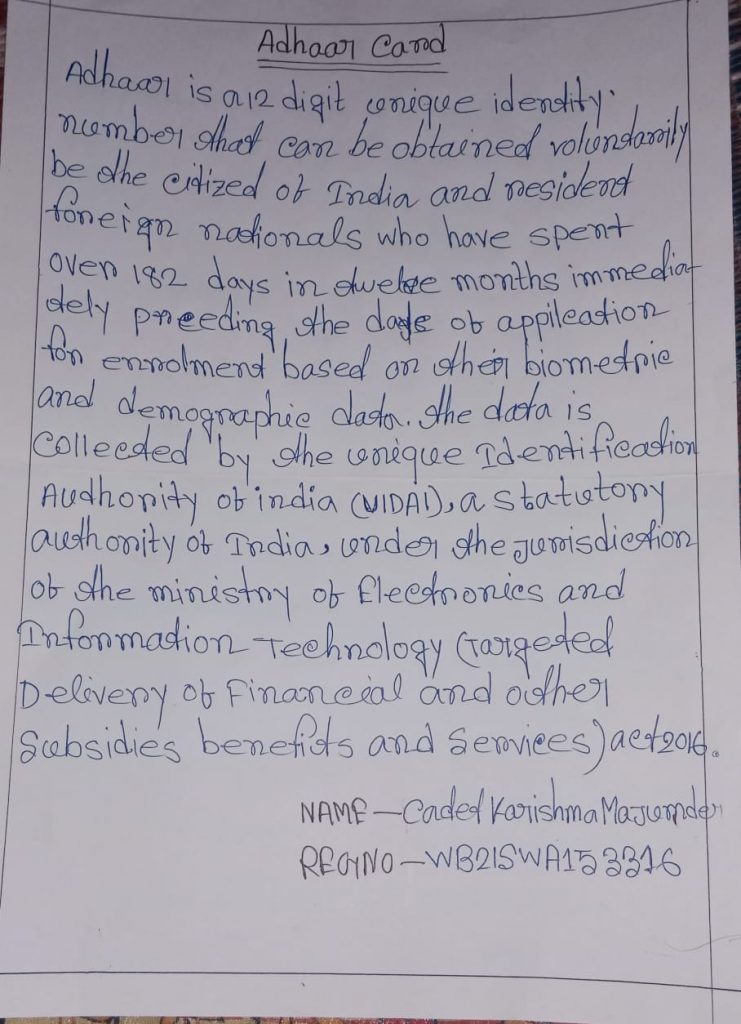 Adhaar Card
Adhaar is a 12 digit unique identity.
number that can be obtained volundarily
be the citized of India and residend
foreign nationals who have spent
over 182 days in twelve months immedia
tely preeding the date of appileation
for enrolment based on their biometric
and demographic data. the data is
Collected by the unique Identification
Authority of india (UIDAI), a statutory
authority of India, under the jurisdiction
of the ministry of Electronics and
Information Technology (Targeted
Delivery of Financial and outher
Subsidies benefits and Services) act 2016.
NAME - Cadet Karishma Majumder
REGNO - WB21SWA153316